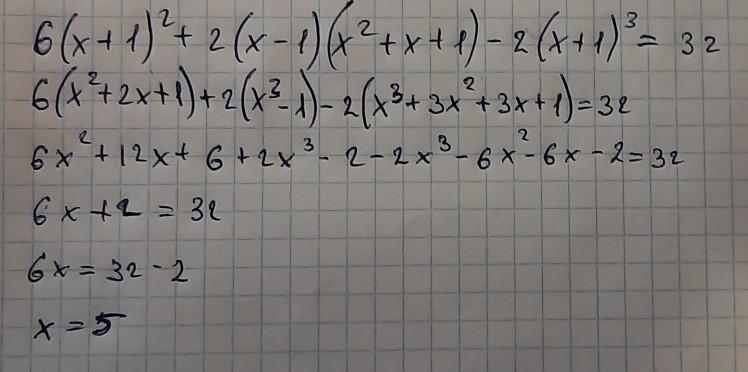 6(x+1)²+ 2(x-1)(x²+x+1)-2(x+1)³= 32
6(x²+2x+1)+2(x³-1)-2(x³+3x²+3x+1)=32
6x²+12x+6+2x³-2-2x³-6x²-6x-2=32
6x+2=32
6x=32-2
x=5